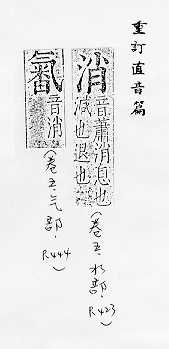 重訂直音篇
消 音蕭消息也
減也退也
(卷五.水部.P.423)
音消
(卷五.气部.P.444)